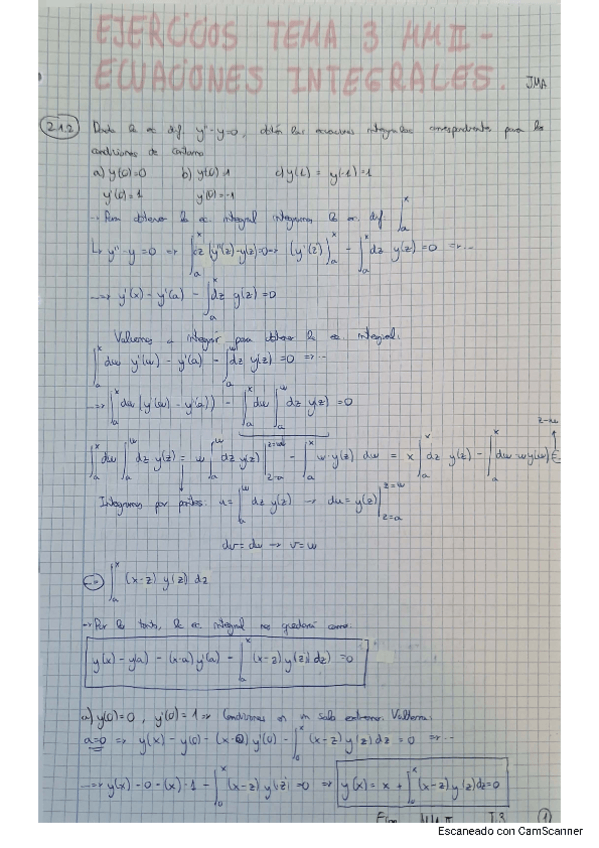 EJERCICIOS TEMA 3 MMII -
ECUACIONES INTEGRALES. JMA
2.1.2 Dada la ec dif. y''-y=0, obtén las ecuaciones integrales correspondientes para las
condiciones de contorno
a) y(0)=0 b) y(0)=1 c) y(1) = y(-1)=1
y'(0)=1 y'(0)=-1
→ Para obtener la ec. integral integramos la ec. dif. ∫_a^x
↳ y''-y=0 ⇒ ∫_a^x dz (y''(z)-y(z))=0 → (y'(z)]_a^x - ∫_a^x dz y(z) = 0 ⇒...
...→ y'(x) - y'(a) - ∫_a^x dz y(z) = 0
Volvemos a integrar para obtener la ec. integral:
∫_a^x dw y'(w) - y'(a) - ∫_a^w dz y(z) = 0 ⇒...
...→ ∫_a^x dw (y'(w) - y'(a)) - ∫_a^x dw ∫_a^w dz y(z) = 0
∫_a^x dw ∫_a^w dz y(z) = w ∫_a^w dz y(z) | - ∫_a^x w·y(z) dw = x ∫_a^x dz y(z) - ∫_a^x dw w y(w)
Integramos por partes: u = ∫_a^w dz y(z) → du = y(z)|_{z=a}^{z=w}
dv = dw → v = w
∫_a^x (x-z) y(z) dz
→ Por lo tanto, la ec. integral nos quedará como:
y(x) - y(a) - (x-a) y'(a) - ∫_a^x (x-z) y(z) dz) = 0
a) y(0)=0, y'(0)=1 ⇒ Condiciones en un solo extremo. Valdrá
a=0 ⇒ y(x) - y(0) - (x-0) y'(0) - ∫_0^x (x-z) y(z) dz = 0 ⇒...
...→ y(x) - 0 - (x)·1 - ∫_0^x (x-z) y(z) = 0 ⇒ y(x) = x + ∫_0^x (x-z) y(z) dz=0
T.3 1
Escaneado con CamScanner